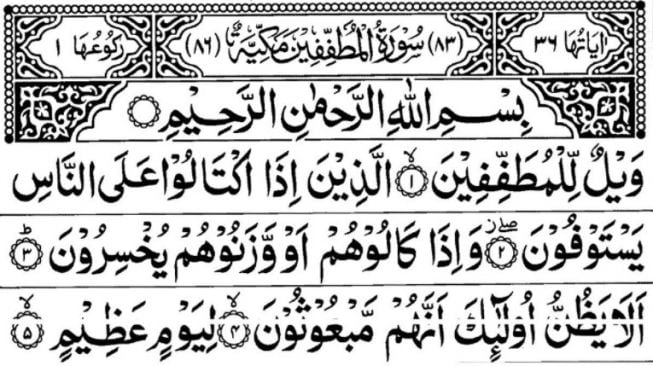 اٰیَاتُهَا ٣٦ (٨٣) سُوْرَةُ الْمُطَفِّفِيْنَ مَكِّيَّةٌ (٨٦) رُكُوْعُهَا ١
بِسْمِ اللّٰهِ الرَّحْمٰنِ الرَّحِيْمِ
وَيْلٌ لِّلْمُطَفِّفِيْنَ ۙ﴿١﴾ الَّذِيْنَ اِذَا اكْتَالُوْا عَلَى النَّاسِ
يَسْتَوْفُوْنَ ﴿٢﴾ وَاِذَا كَالُوْهُمْ اَوْ وَّزَنُوْهُمْ يُخْسِرُوْنَ ؕ﴿٣﴾
اَلَا يَظُنُّ اُولٰٓئِكَ اَنَّهُمْ مَّبْعُوْثُوْنَ ۙ﴿٤﴾ لِيَوْمٍ عَظِيْمٍ ۙ﴿٥﴾